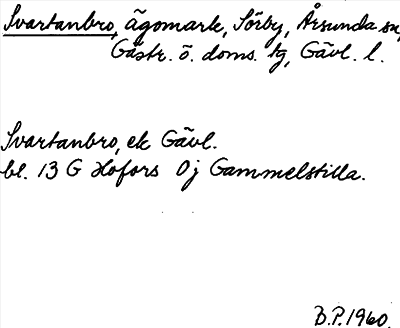 Svartanbro, ägomark, Sörby, Årsunda sn,
Gästr. ö. doms. tg, Gävl. l.
Svartanbro, ek Gävl.
bl. 13 G Hofors 0j Gammelstilla.
B.P. 1960.